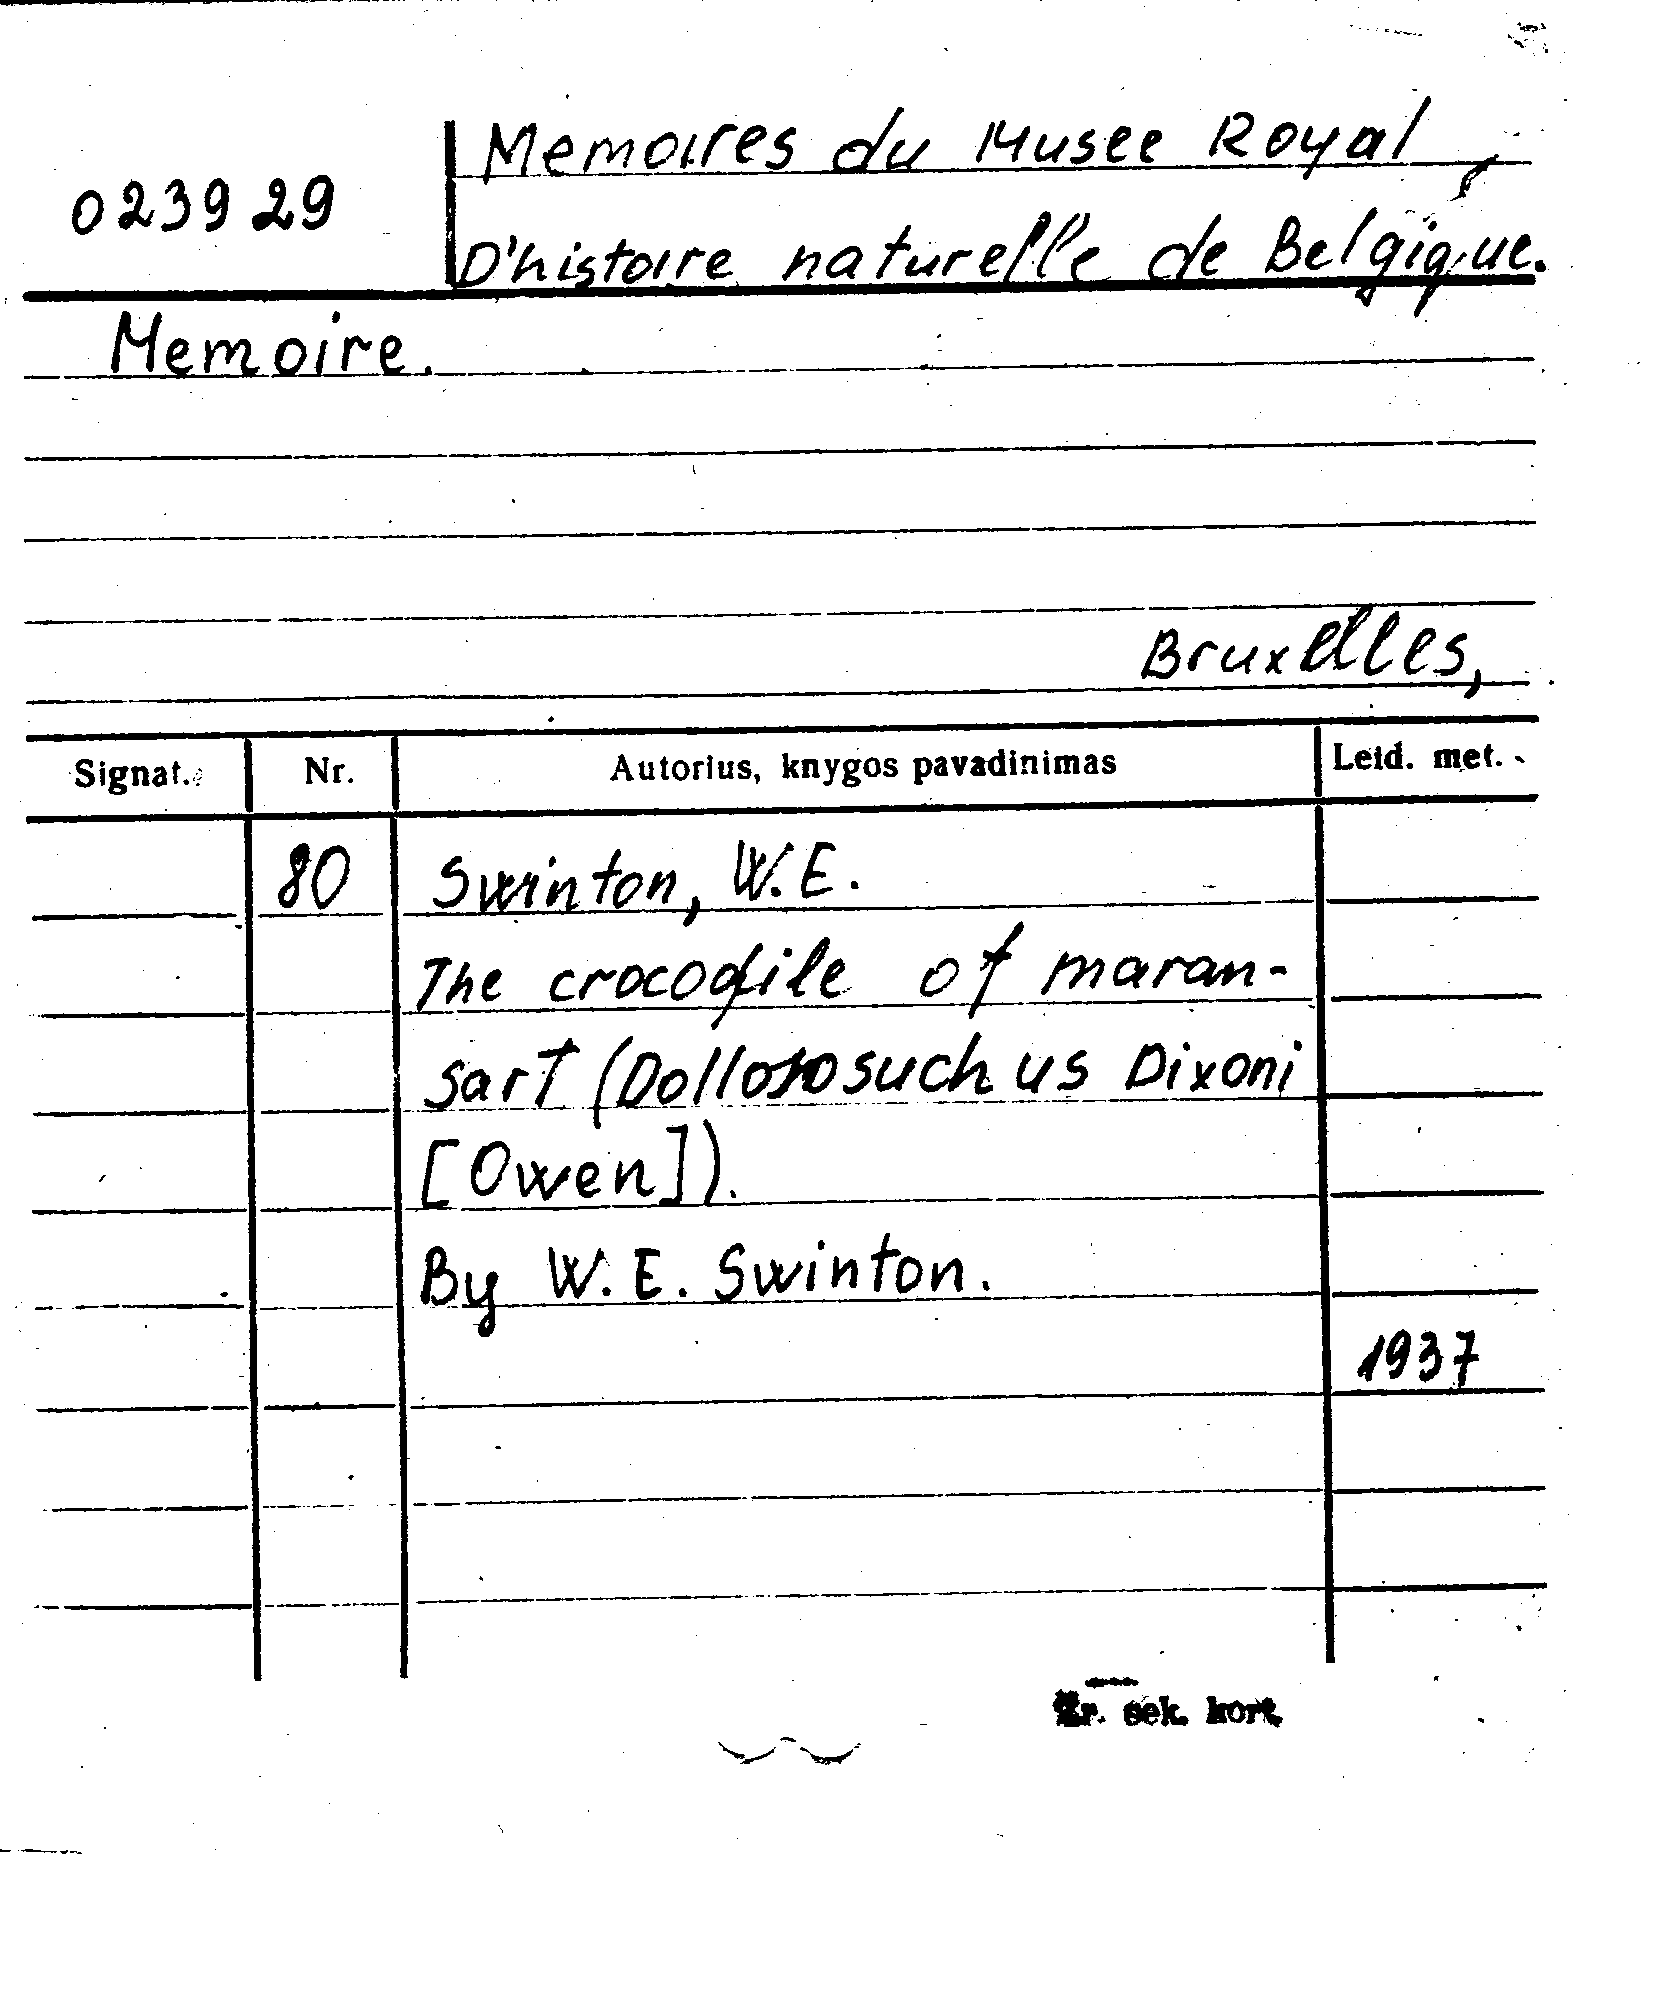 Memoires du Musee Royal
023929
D'histoire naturelle de Belgique.
Memoire.
Bruxelles,
Signat. Nr. Autorius, knygos pavadinimas Leid. met.
80 Swinton, W.E.
The crocodile of maran-
sart (Dollososuchus Dixoni
[Owen]).
By W. E. Swinton.
1937
Žr. sek. kort.